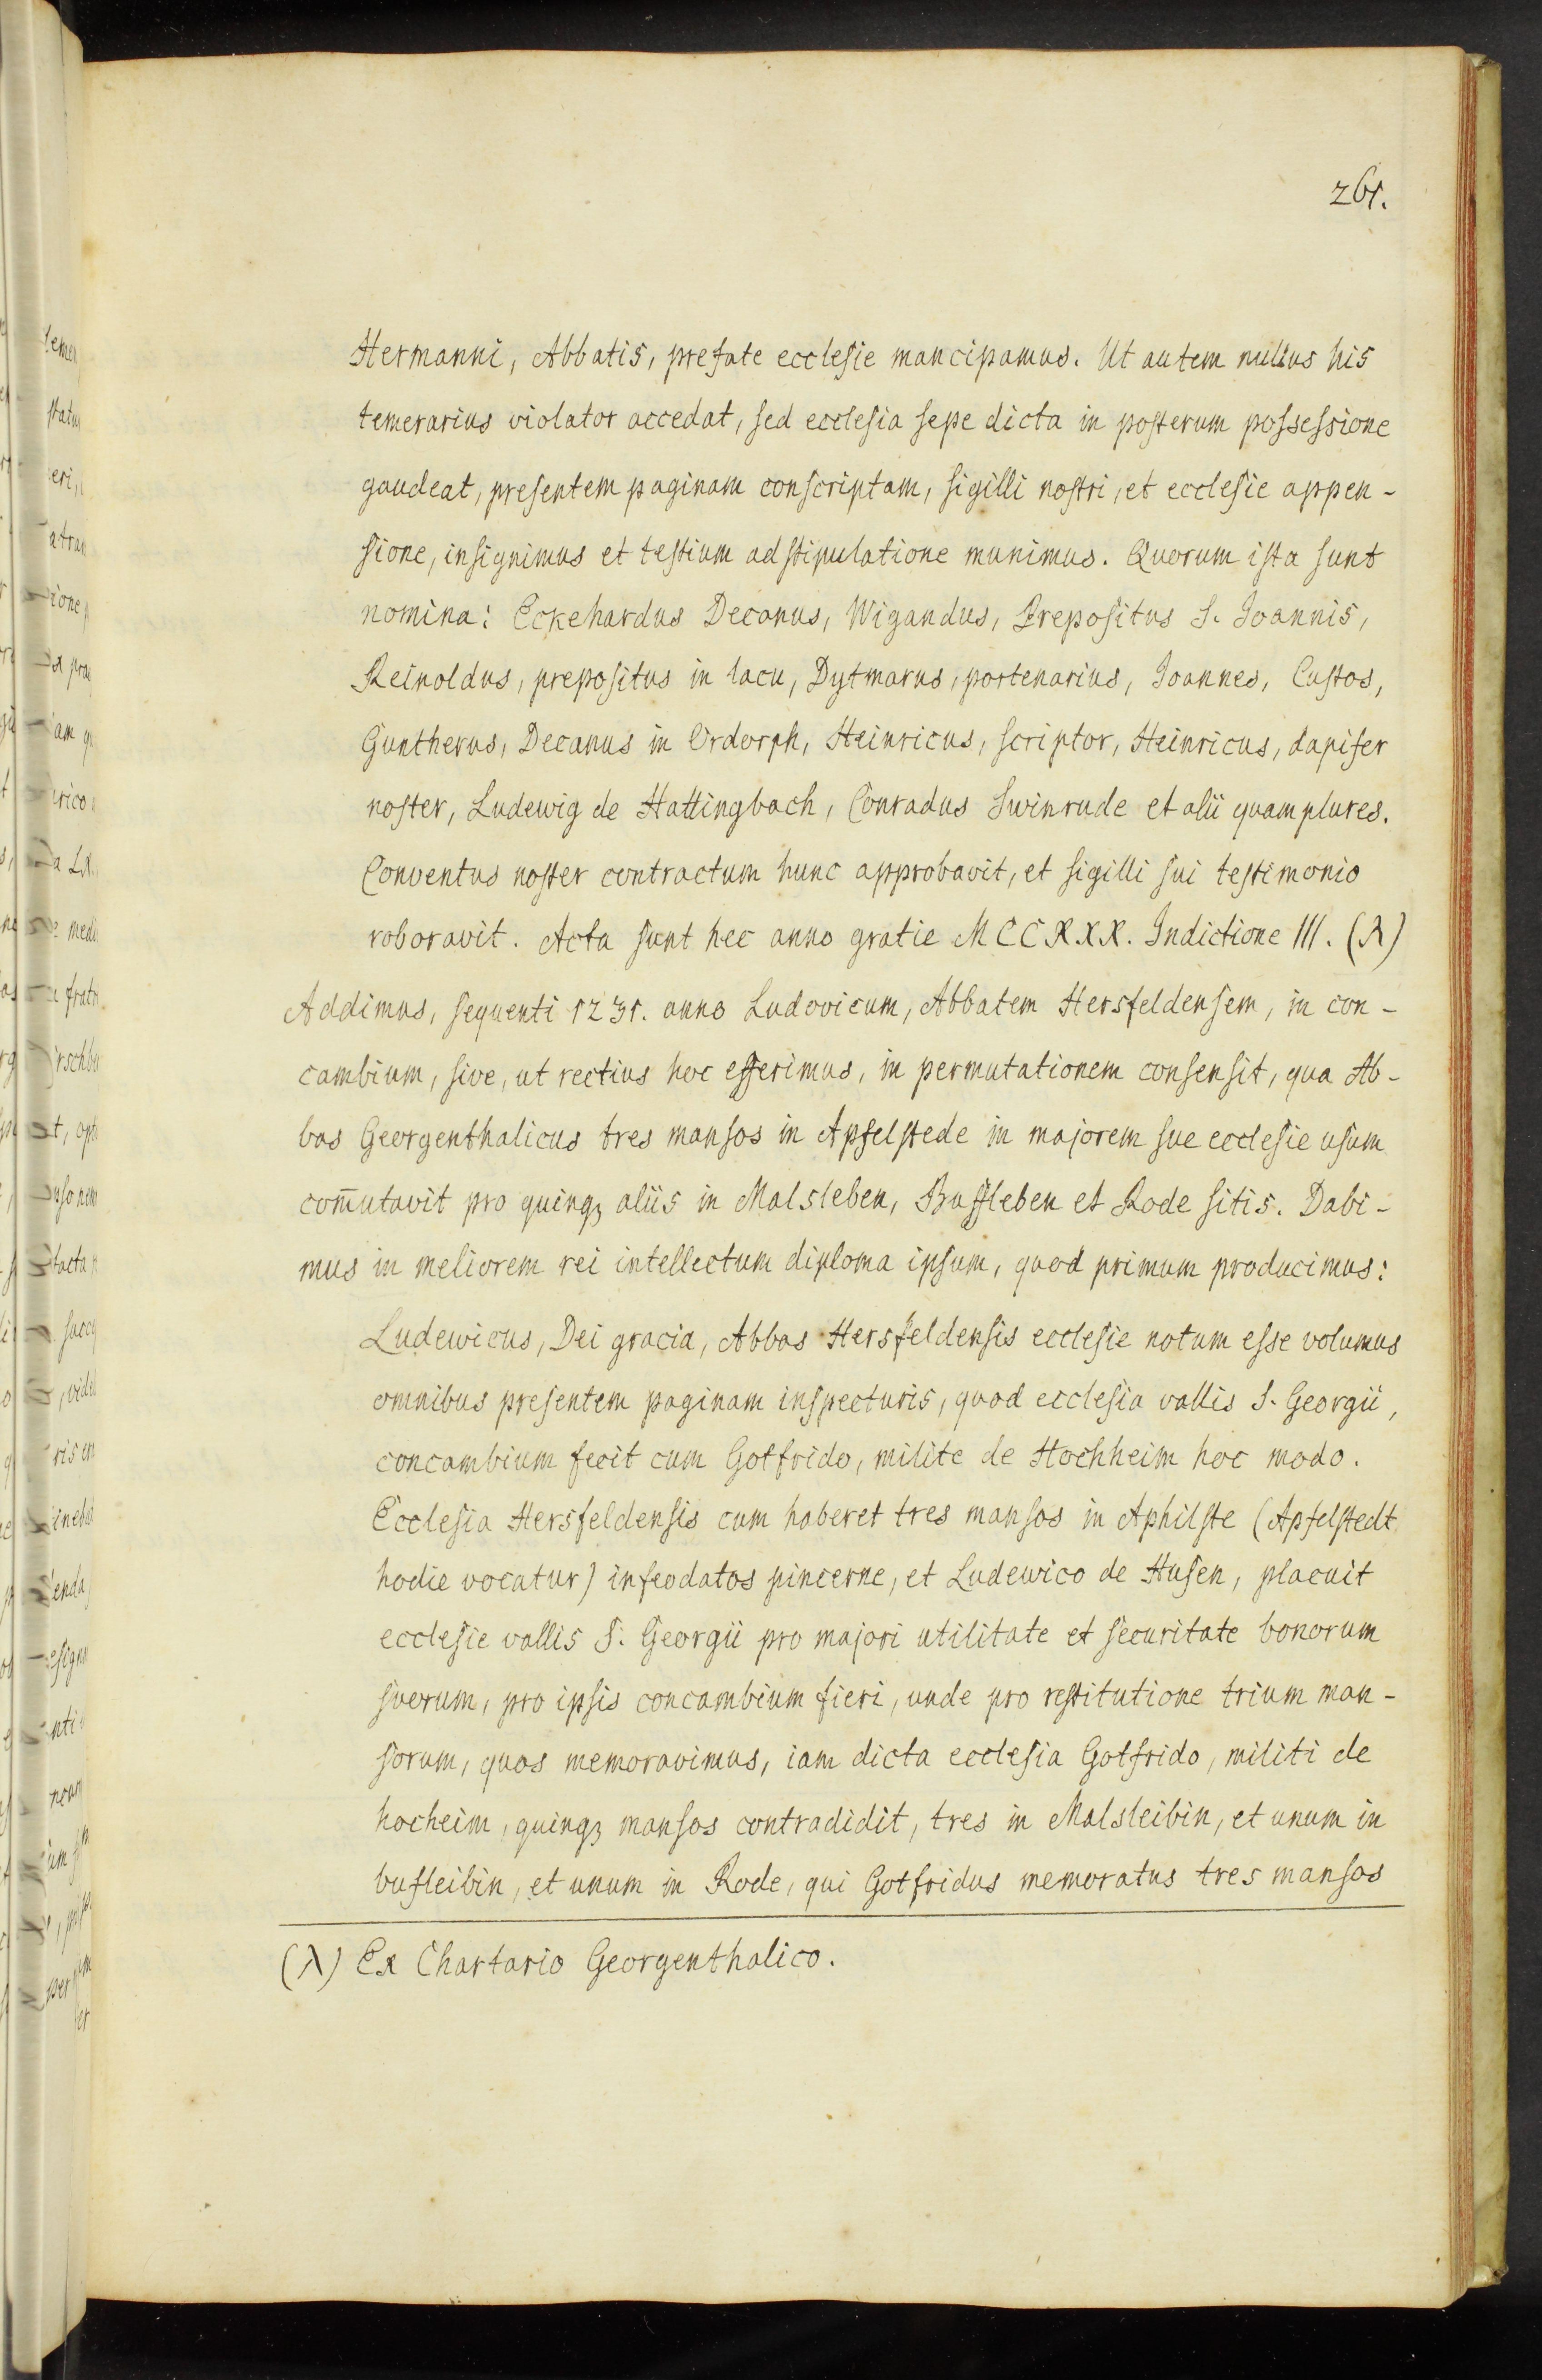 261.
Hermanni, Abbatis, prefate ecclesie mancipamus. Ut autem nullus his
temerarius violator accedat, sed ecclesia sepe dicta in posterum possessione
gaudeat, presentem paginam conscriptam, sigilli nostri, et ecclesie appen-
sione, insignimus et testium adstipulatione munimus. Quorum ista sunt
nomina: Eckehardus Decanus, Wigandus, Prepositus S. Joannis,
Reinoldus, prepositus in lacu, Dytmarus, portenarius, Joannes, Custos,
Guntherus, Decanus in Ordorph, Heinricus, scriptor, Heinricus, dapifer
noster, Ludewig de Hattingbach, Conradus Swinrude et alii quamplures.
Conventus noster contractum hunc approbavit, et sigilli sui testimonio
roboravit. Acta sunt hec anno gratie MCCXXX. Indictione III. (λ)
Addimus, sequenti 1231. anno Ludovicum, Abbatem Hersfeldensem, in con-
cambium, sive, ut rectius hoc efferimus, in permutationem consensit, qua Ab-
bas Georgenthalicus tres mansos in Apfelstede in majorem sue ecclesie usum
com̄utavit pro quinqꝫ aliis in Malsleben, Buffleben et Rode sitis. Dabi-
mus in meliorem rei intellectum diploma ipsum, quod primum producimus:
Ludewicus, Dei gracia, Abbas Hersfeldensis ecclesie notum esse volumus
omnibus presentem paginam inspecturis, quod ecclesia vallis S. Georgii,
concambium fecit cum Gotfrido, milite de Hochheim hoc modo.
Ecclesia Hersfeldensis cum haberet tres mansos in Aphilste (Apfelstedt
hodie vocatur) infeodatos pincerne, et Ludewico de Husen, placuit
ecclesie vallis S. Georgii pro majori utilitate et securitate bonorum
suorum, pro ipsis concambium fieri, unde pro restitutione trium man-
sorum, quos memoravimus, iam dicta ecclesia Gotfrido, militi de
hocheim, quinqꝫ mansos contradidit, tres in Malsleibin, et unum in
bufleibin, et unum in Rode, qui Gotfridus memoratus tres mansos
(λ) Ex Chartario Georgenthalico.